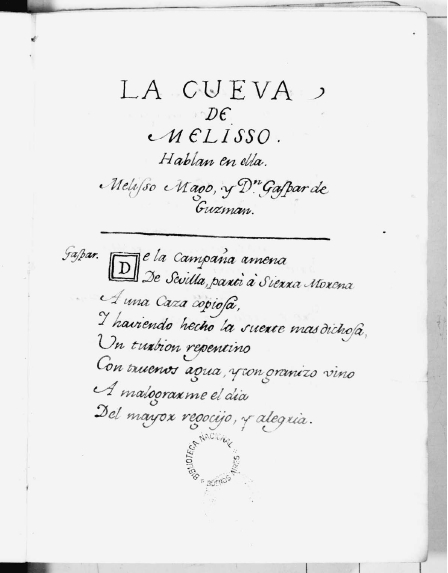 LA CUEVA
DE
MELISSO.
Hablan en ella.
Melisso Mago, y D.ⁿ Gaspar de
Guzman.
Gaspar. De la Campaña amena
De Sevilla, parti à Sierra Morena
A una Caza copiosa,
Y haviendo hecho la suerte mas dichosa,
Un turbion repentino
Con truenos agua, y con granizo vino
A malograrme el dia
Del mayor regocijo, y alegria.
BIBLIOTECA NACIONAL